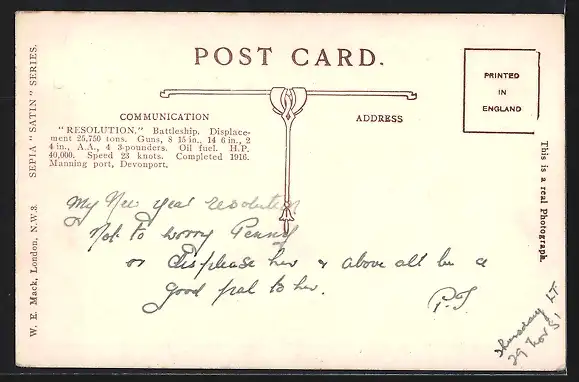 POST CARD.
PRINTED
IN
ENGLAND
COMMUNICATION
ADDRESS
"RESOLUTION." Battleship. Displace-
ment 25,750 tons. Guns, 8 15 in., 14 6 in., 2
4 in., A.A., 4 3-pounders. Oil fuel. H.P.
40,000. Speed 23 knots. Completed 1916.
Manning port, Devonport.
SEPIA "SATIN" SERIES.
W. E. Mack, London, N.W.3.
This is a real Photograph.
My New year resolution
Not to worry Penny
or displease her & above all be a
good pal to her.
P.T
Thursday
29 Nov 51